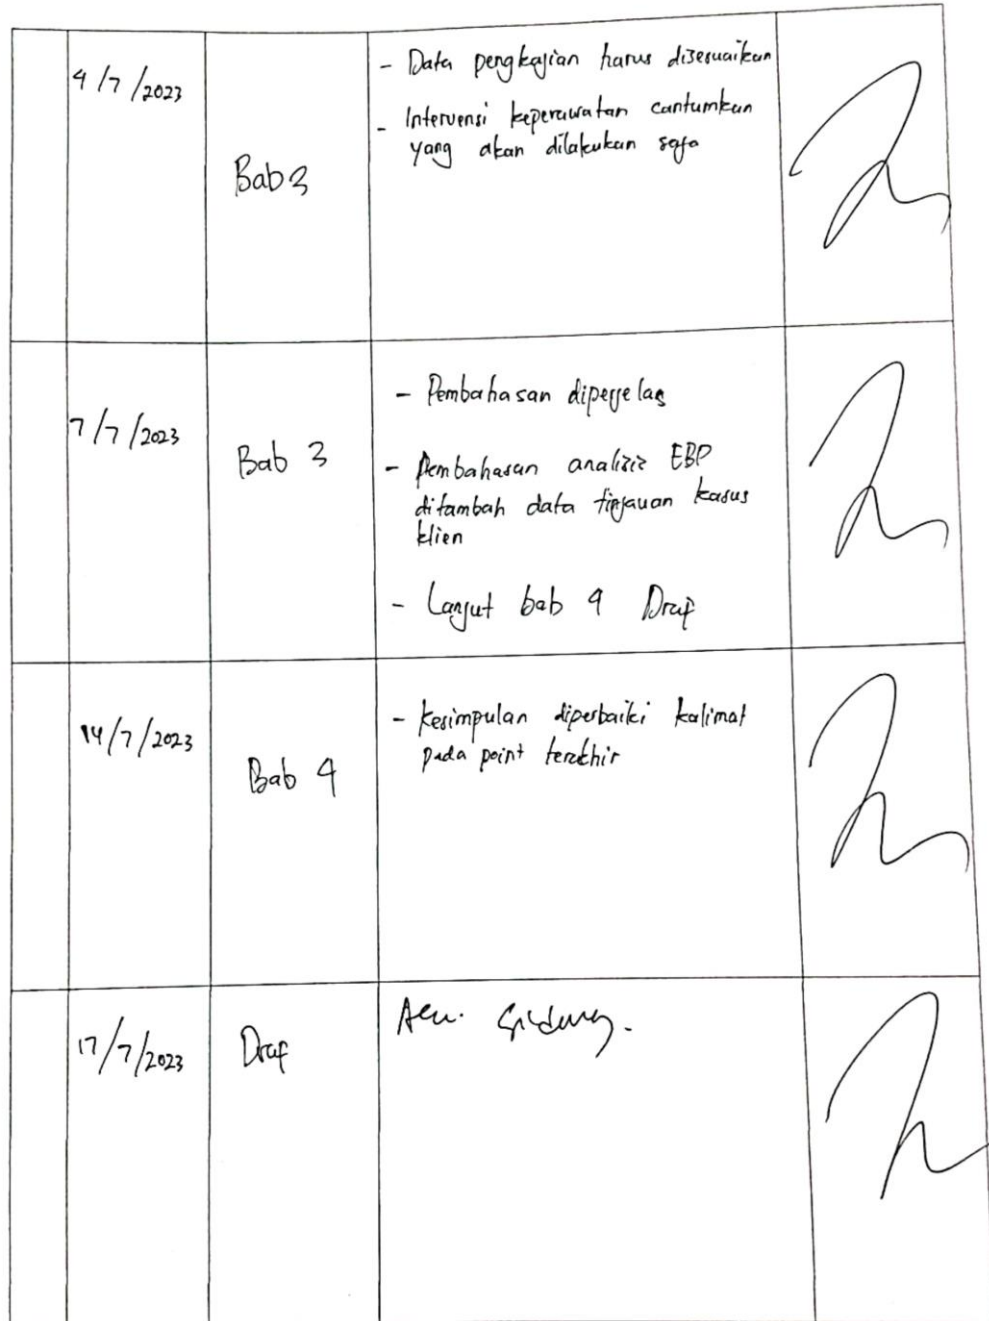 4/7/2023
Bab 3
- Data pengkajian harus disesuaikan
- Intervensi keperawatan cantumkan
yang akan dilakukan saja
7/7/2023
Bab 3
- Pembahasan diperjelas
- Pembahasan analisis EBP
ditambah data tinjauan kasus
klien
- Lanjut bab 4 Draf
14/7/2023
Bab 4
- Kesimpulan diperbaiki kalimat
pada point terakhir
17/7/2023
Draf
Acc. Sidang.